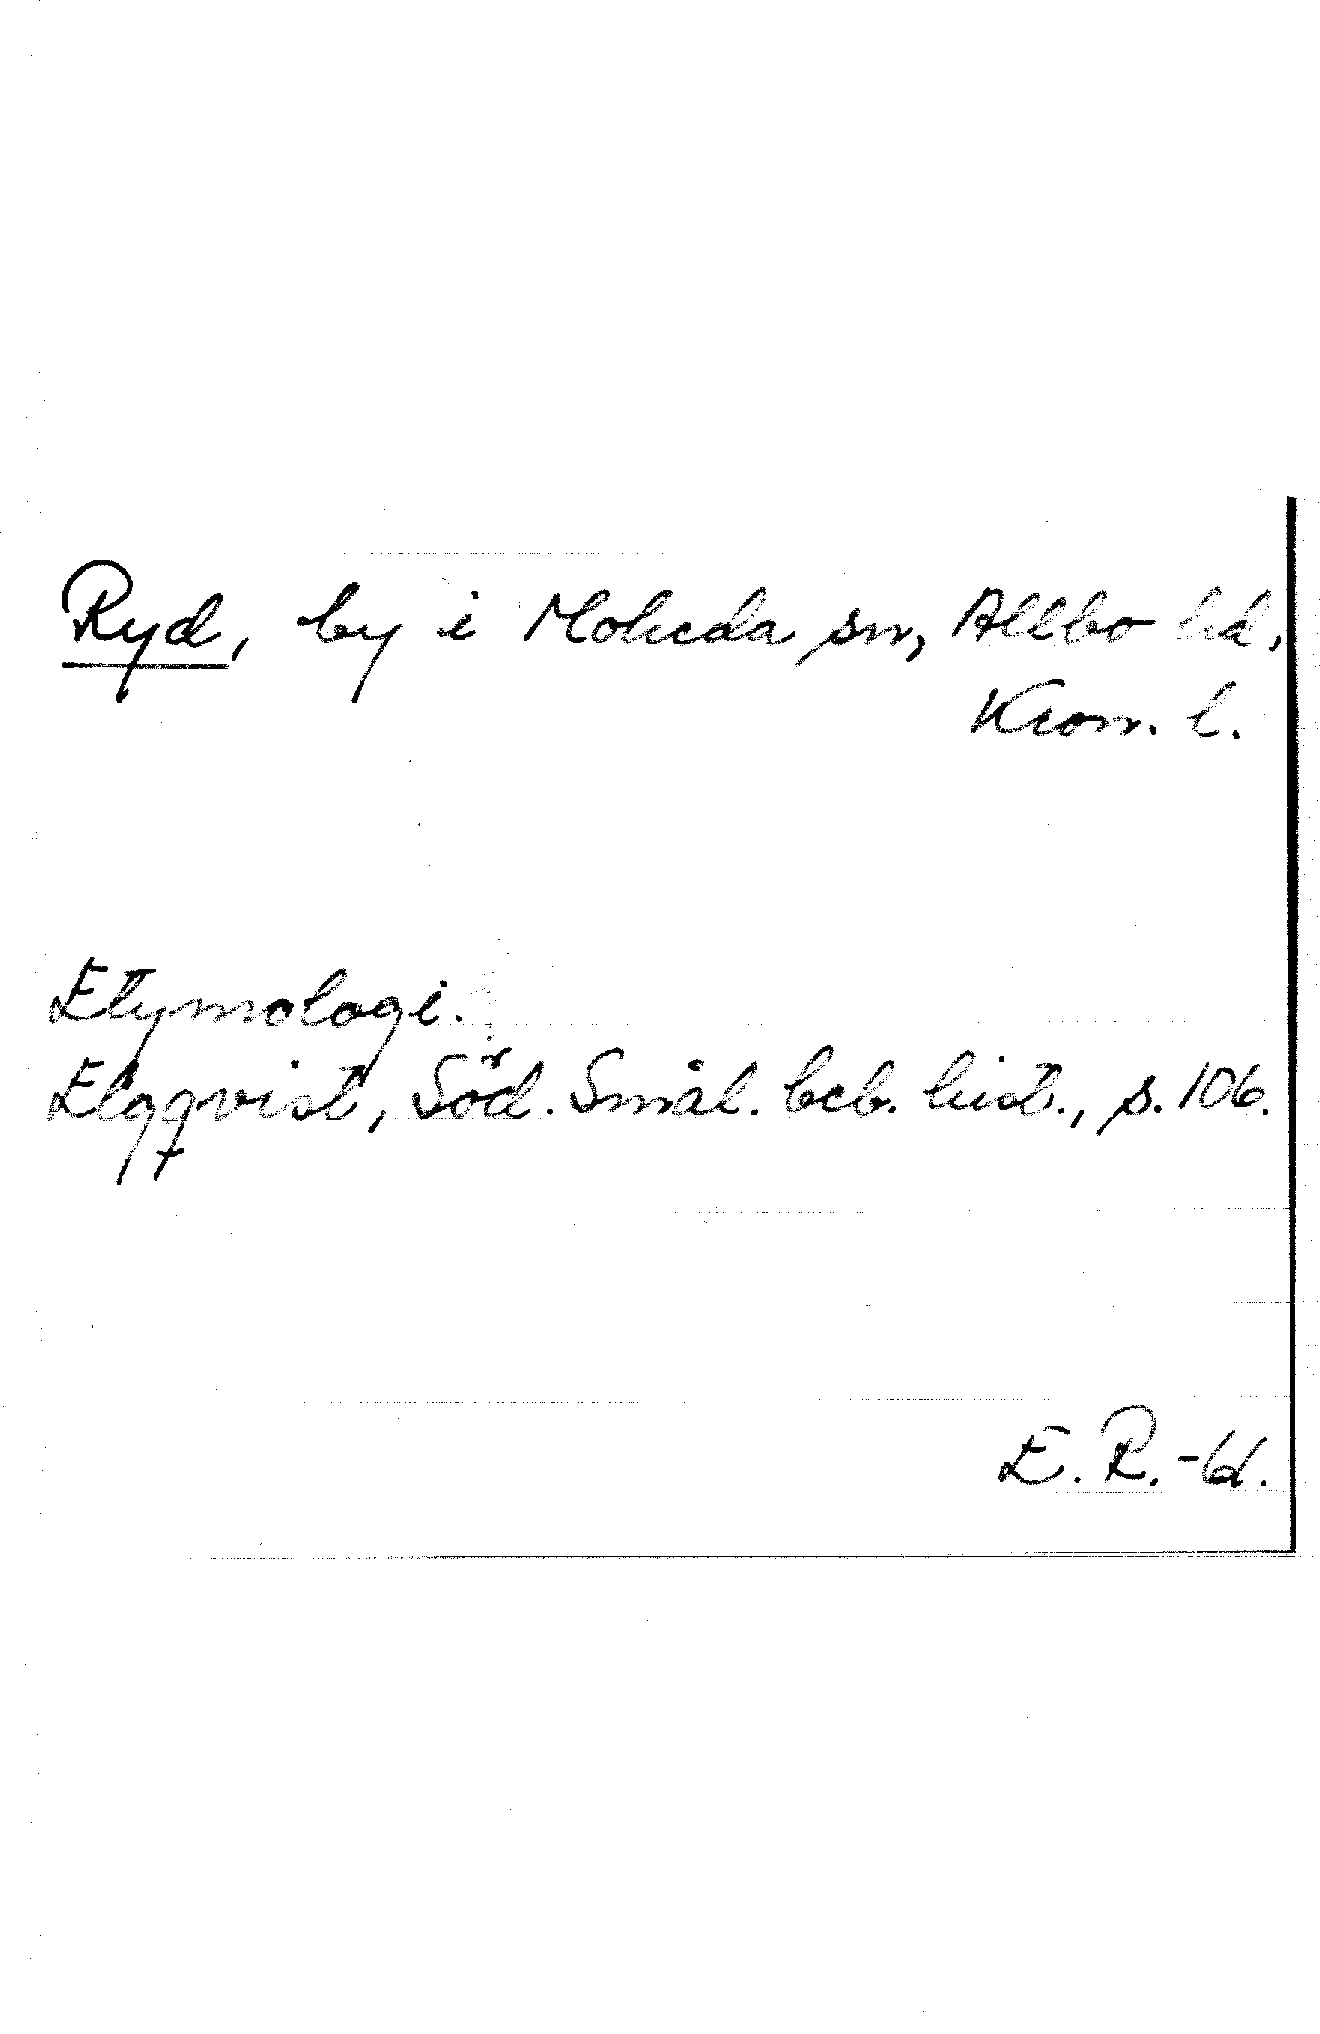 Ryd, by i Moheda sn, Allbo hd,
Kron. l.
Etymologi.
Elgqvist, Söd. Smål. beb. hist., s. 106.
E. R. -61.